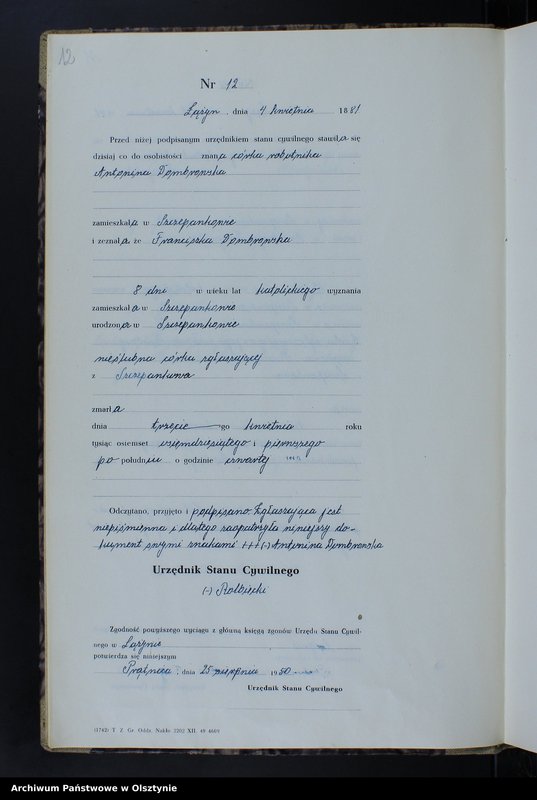 12
Nr 12
Łążyn, dnia 4 kwietnia 1881
Przed niżej podpisanym urzędnikiem stanu cywilnego stawiła się
dzisiaj co do osobistości znana córka robotnika
Antonina Dombrowska
zamieszkała w Szczepankowie
i zeznała, że Franciszka Dombrowska
8 dni w wieku lat katolickiego wyznania
zamieszkała w Szczepankowie
urodzona w Szczepankowie
nieślubna córka zgłaszającej
z Szczepankowa
zmarła
dnia trzecie go kwietnia roku
tysiąc osiemset osiemdziesiątego i pierwszego
po południu o godzinie czwartej
Odczytano, przyjęto i podpisano: Zgłaszająca jest
niepiśmienna i dlatego zaopatrzyła niniejszy do-
kument swymi znakami +++ (-) Antonina Dombrowska
Urzędnik Stanu Cywilnego
(-) Rolbiecki
Zgodność powyższego wyciągu z główną księgą zgonów Urzędu Stanu Cywil-
nego w Łążynie
potwierdza się niniejszym
Prątnica, dnia 25 sierpnia 1950
Urzędnik Stanu Cywilnego
(1742) T. Z. Gr. Oddz. Nakło 2202 XII. 49 4609
Archiwum Państwowe w Olsztynie